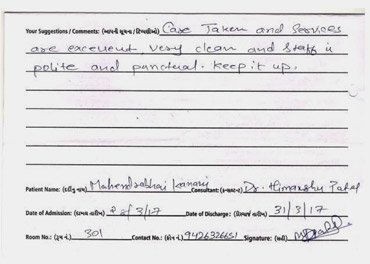 Your Suggestions / Comments: (આપની સૂચના / ટિપ્પણીઓ) Care Taken and Services
are excellent, very clean and staff is
polite and punctual. keep it up.
Patient Name: (દર્દીનું નામ) Mahendrabhai Consultant: (ડૉક્ટર) Dr. Himanshu Patel
Date of Admission: (દાખલ તારીખ) Date of Discharge: (ડિસ્ચાર્જ તારીખ) 31/3/17
Room No.: (રૂમ નં.) 301 Contact No.: (ફોન નં.) 9426326651 Signature: (સહી)